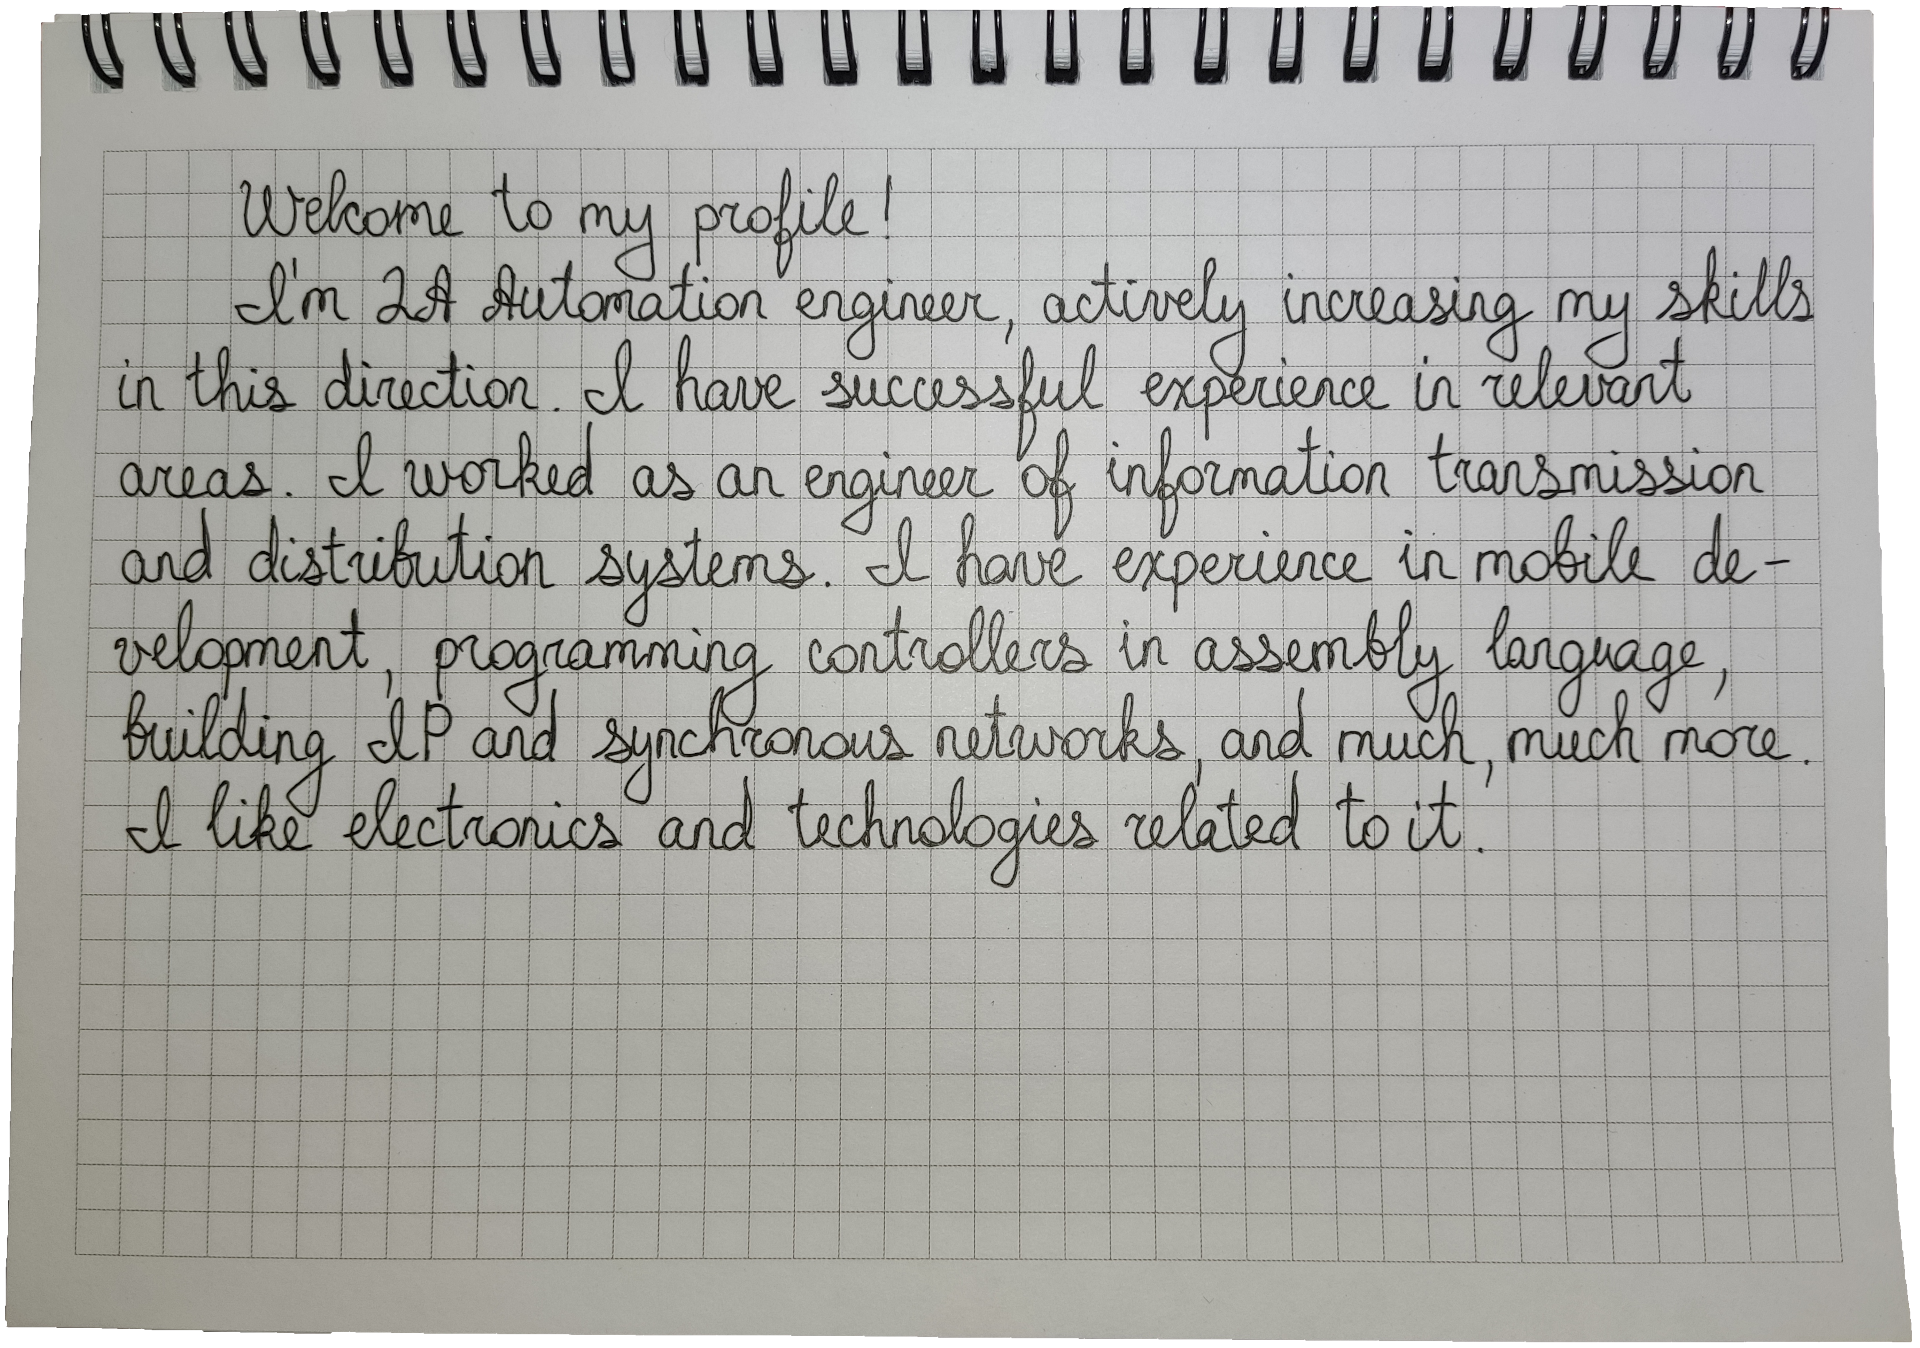 Welcome to my profile!
I'm QA Automation engineer, actively increasing my skills
in this direction. I have successful experience in relevant
areas. I worked as an engineer of information transmission
and distribution systems. I have experience in mobile de-
velopment, programming controllers in assembly language,
building IP and synchronous networks, and much, much more.
I like electronics and technologies related to it.